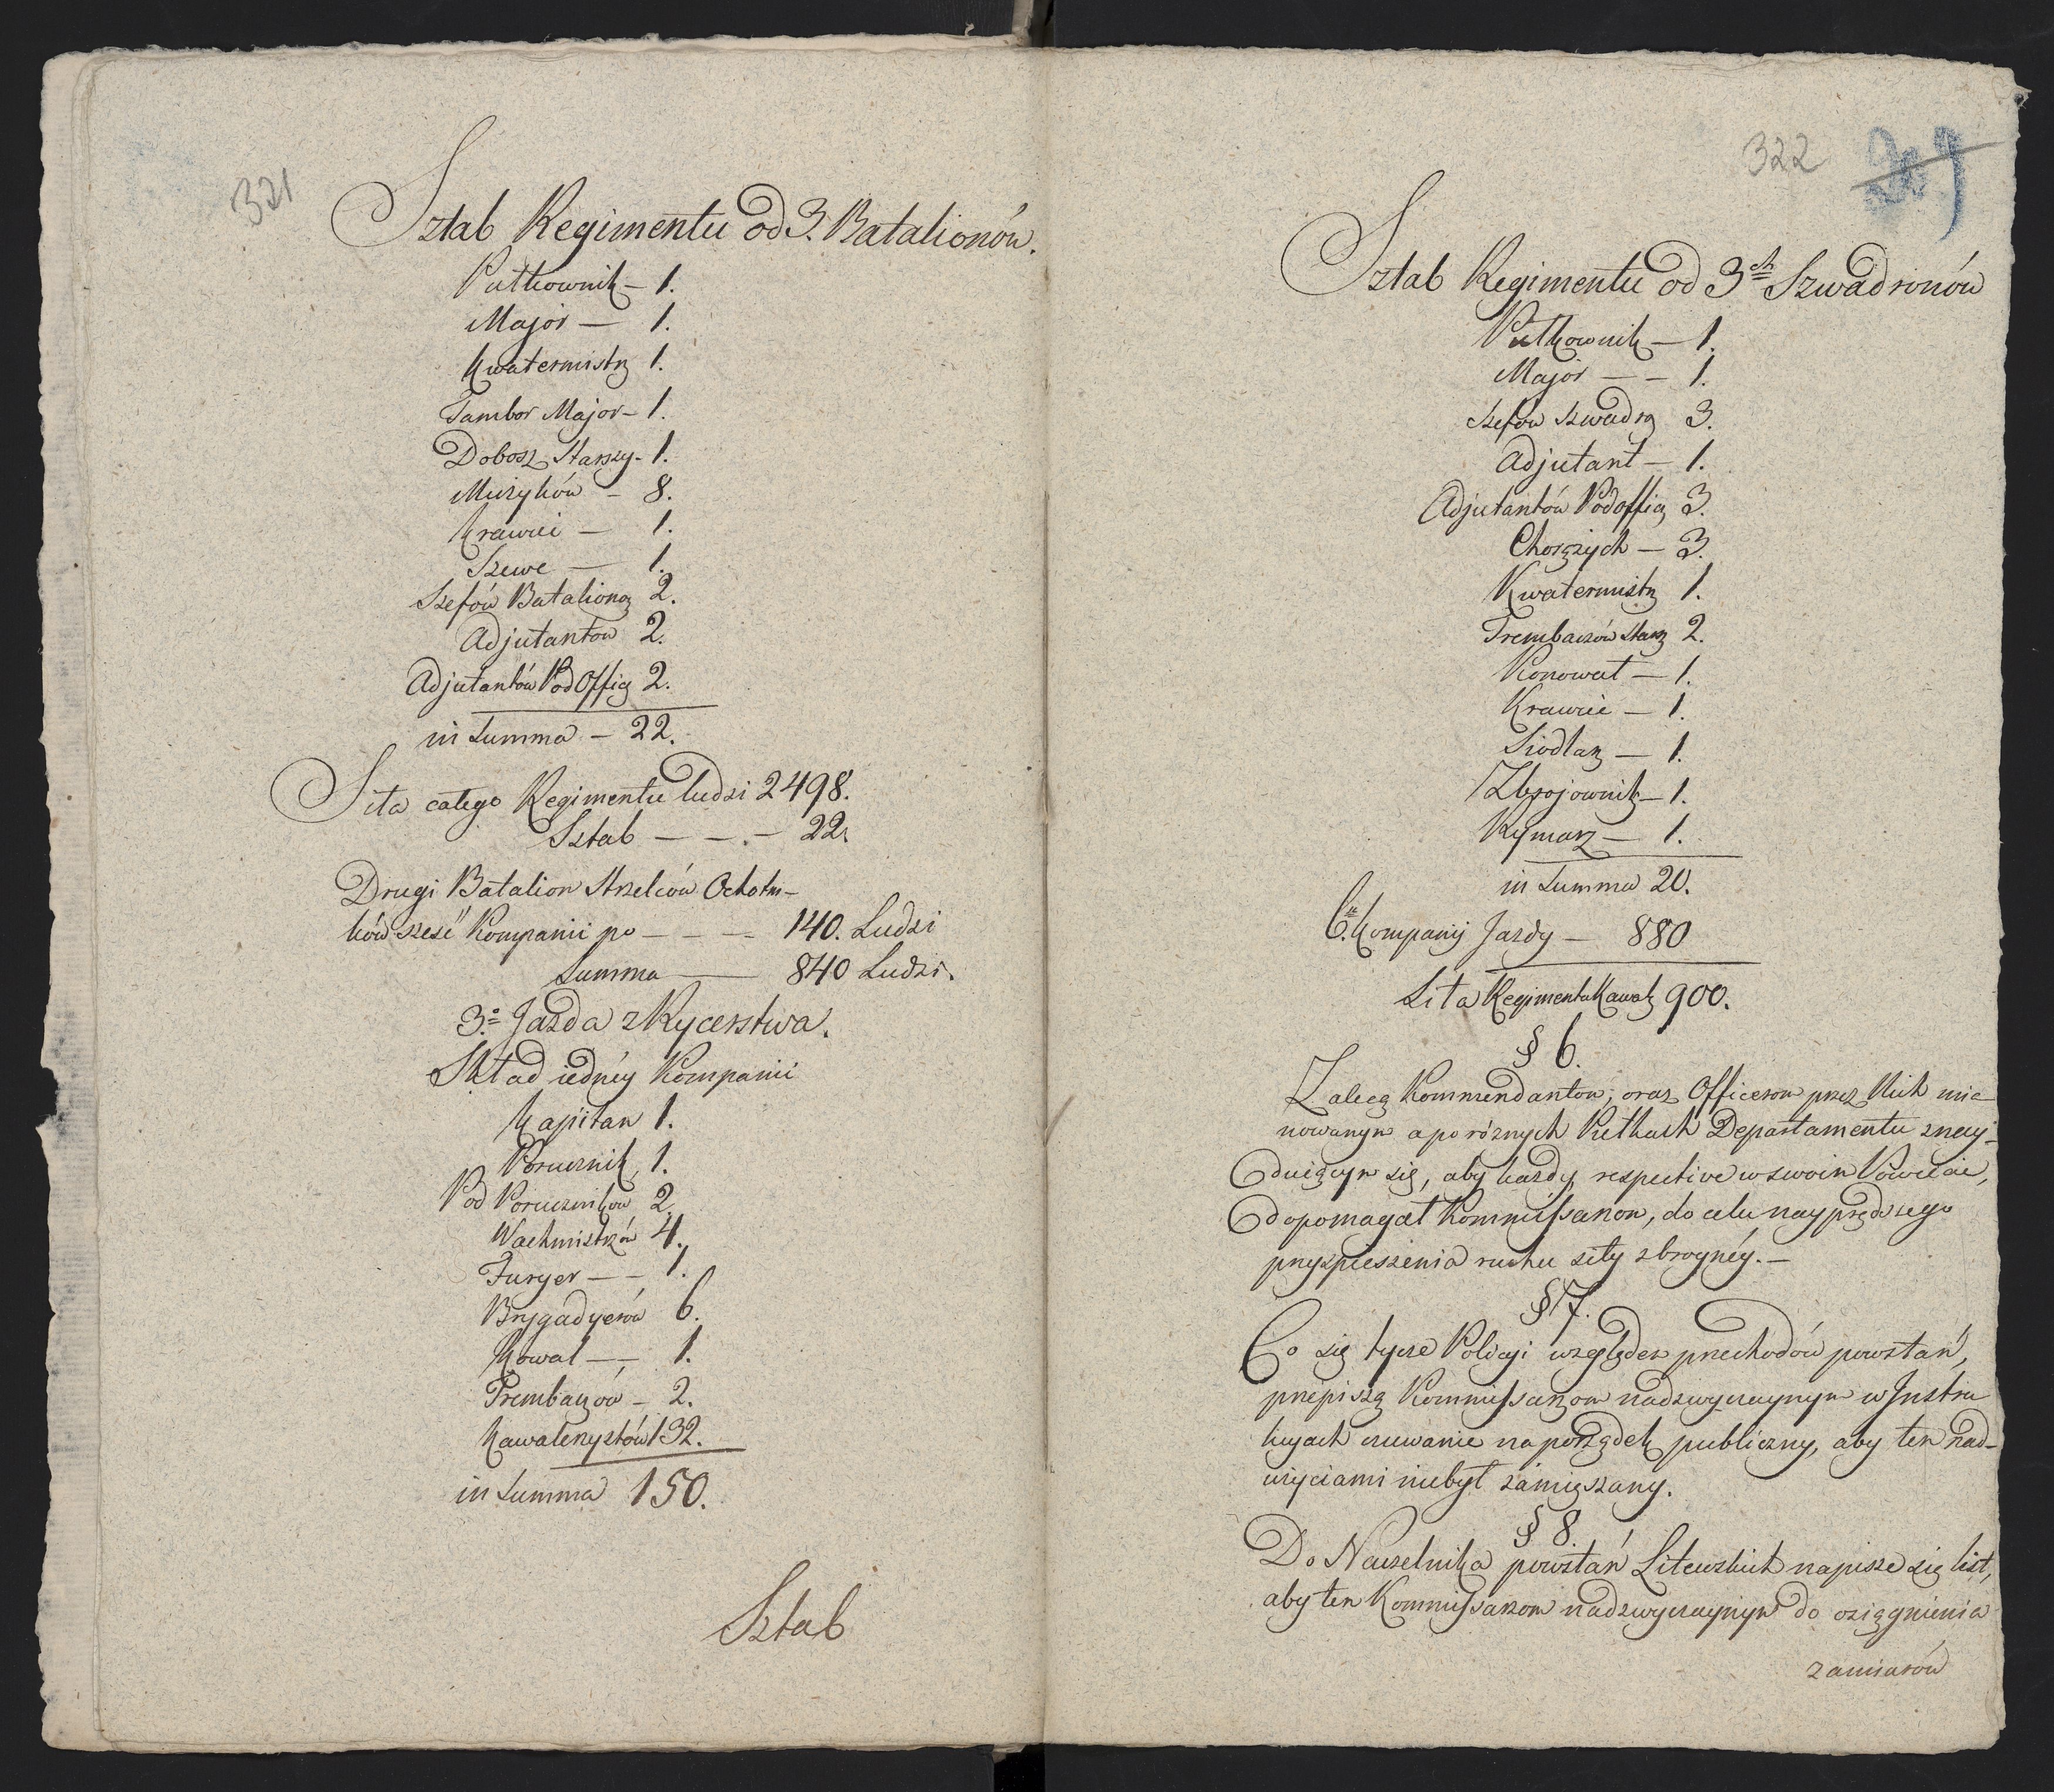 321
Sztab Regimentu od 3. Batalionów.
Pułkownik – 1.
Major — 1.
Kwatermistrz 1.
Tambor Major – 1.
Dobosz Starszy – 1.
Muzyków – 8.
Krawiec — 1.
Szewc — 1.
Szefów Batalionoẓ 2.
Adjutantow 2.
Adjutantów Pod Offic 2.
in Summa – 22.
Siła całego Regimentu ludzi 2498.
Sztab – – . – 22.
Drugi Batalion Strzelców Ochotni-
ków sześć Kompanii po – – – 140. Ludzi
Summa — 840 Ludzi.
3.o Jazda z Rycerstwa.
Skład iednéy Kompanii
Kapitan 1.
Porucznik 1.
Pod Poruczników 2.
Wachmistrzów 4.
Furyer – – 1.
Brygadyerów 6.
Kowal – – 1.
Trembaczów – 2.
Kawalerzystów 132.
in Summa 150.
Sztab
322
Sztab Regimentu od 3ch Szwadronów
Pułkownik – 1.
Major – – 1.
Szefów Szwadro 3.
Adjutant – 1.
Adjutantów Podoffic 3.
Chorążych – 3.
Kwatermistrz 1.
Trembaczów Stars 2.
Konował – 1.
Krawiec – 1.
Siodlarz – 1.
Zbrojownik – 1.
Rymarz – 1.
in Summa 20.
6. Kompanij Jazdy – 880
Siła Regimentu Kawal 900.
§ 6.
Zalecą Kommendantom, oraz Officerom przez Nich mia-
nowanym a po różnych Pułkach Departamentu znay-
duiącym się, aby każdy respective w swoim Powiecie,
dopomagał Kommissarzom, do celu nayprędszego
przyspieszenia ruchu siły zbroynéy. –
§ 7.
Co się tycze Policyi względem przechodów powstań,
przepiszą Kommissarzom nadzwyczaynym w Instru
kcyach czuwanie na porządek publiczny, aby ten nad-
użyciami niebył zamięszany.
§ 8.
Do Naczelnika powstań Litewskich napisze się list,
aby ten Kommissarzom nadzwyczaynym do osiągnienia
zamiarów